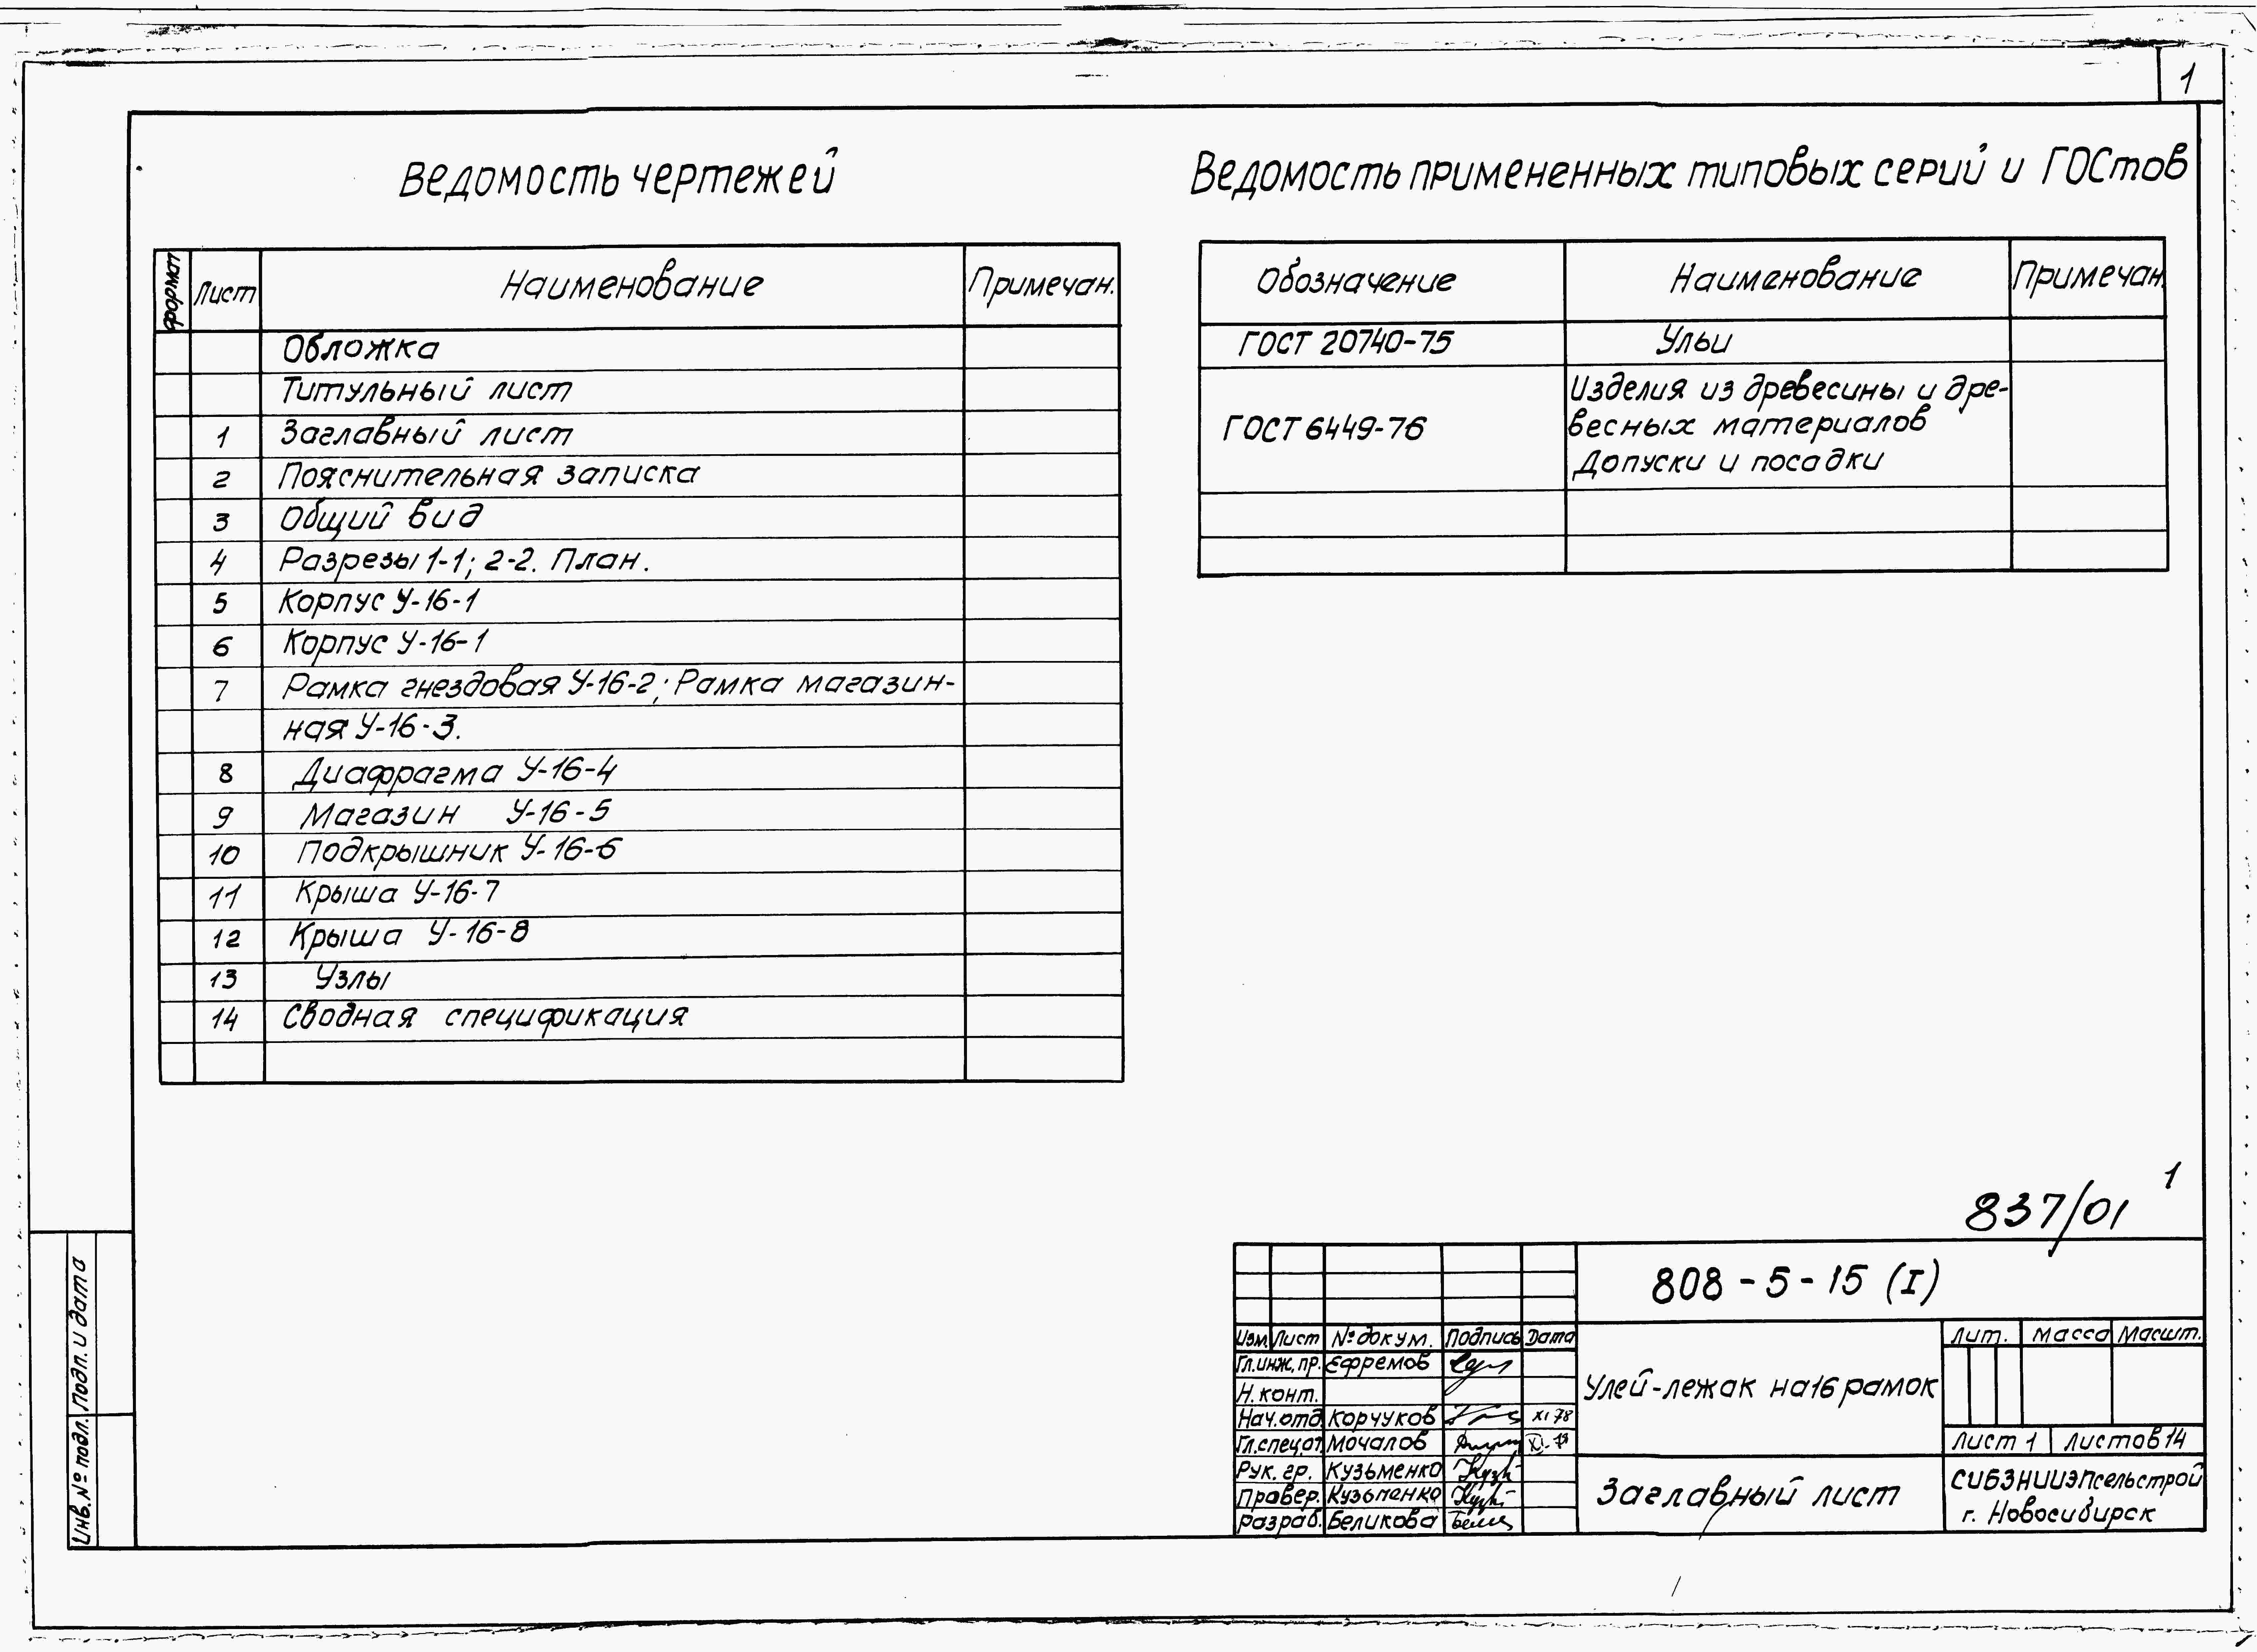 1
Ведомость чертежей
Формат Лист Наименование Примечан.
Обложка
Титульный лист
1 Заглавный лист
2 Пояснительная записка
3 Общий вид
4 Разрезы 1-1; 2-2. План.
5 Корпус У-16-1
6 Корпус У-16-1
7 Рамка гнездовая У-16-2; Рамка магазин-
ная У-16-3.
8 Диафрагма У-16-4
9 Магазин У-16-5
10 Подкрышник У-16-6
11 Крыша У-16-7
12 Крыша У-16-8
13 Узлы
14 Сводная спецификация
Ведомость примененных типовых серий и ГОСтов
Обозначение Наименование Примечан.
ГОСТ 20740-75 Ульи
ГОСТ 6449-76 Изделия из древесины и дре-
весных материалов
Допуски и посадки
837/01 1
808-5-15 (I)
Изм. Лист № докум. Подпись Дата
Гл.инж.пр. Ефремов
Н. конт.
Нач.отд. Корчуков XI 78
Гл.спец.от. Мочалов XI-78
Рук. гр. Кузьменко
Провер. Кузьменко
Разраб. Беликова
Улей-лежак на 16 рамок
Заглавный лист
Лит. Масса Масшт.
Лист 1 Листов 14
СИБЗНИИЭПсельстрой
г. Новосибирск
Подп. и дата
Инв. № подл.